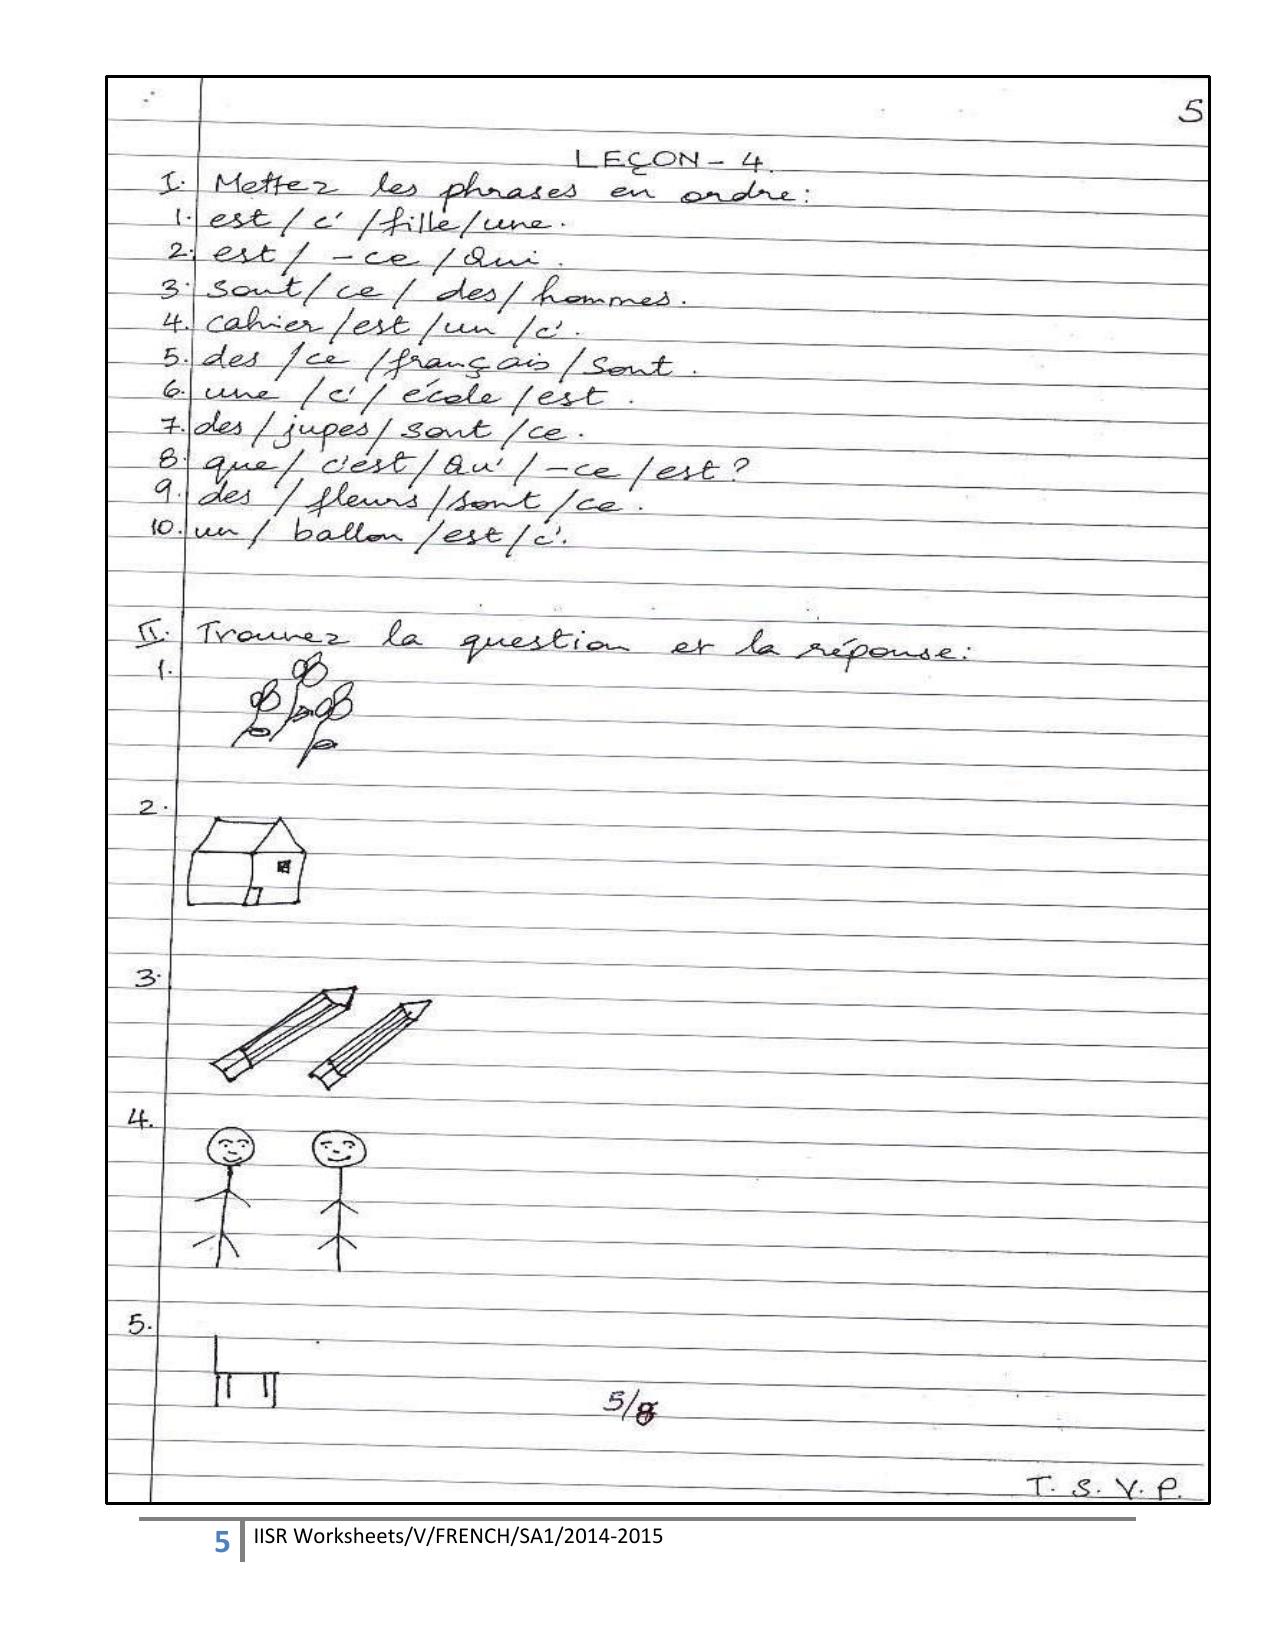 5
LEÇON - 4.
I. Mettez les phrases en ordre:
1. est / c' / fille / une.
2. est / -ce / Qui.
3. sont / ce / des / hommes.
4. cahier / est / un / c'.
5. des / ce / français / sont.
6. une / c' / école / est.
7. des / jupes / sont / ce.
8. que / c'est / Qu' / -ce / est?
9. des / fleurs / sont / ce.
10. un / ballon / est / c'.
II. Trouvez la question et la réponse:
1.
2.
3.
4.
5.
5/8
T. S. V. P.
5 IISR Worksheets/V/FRENCH/SA1/2014-2015